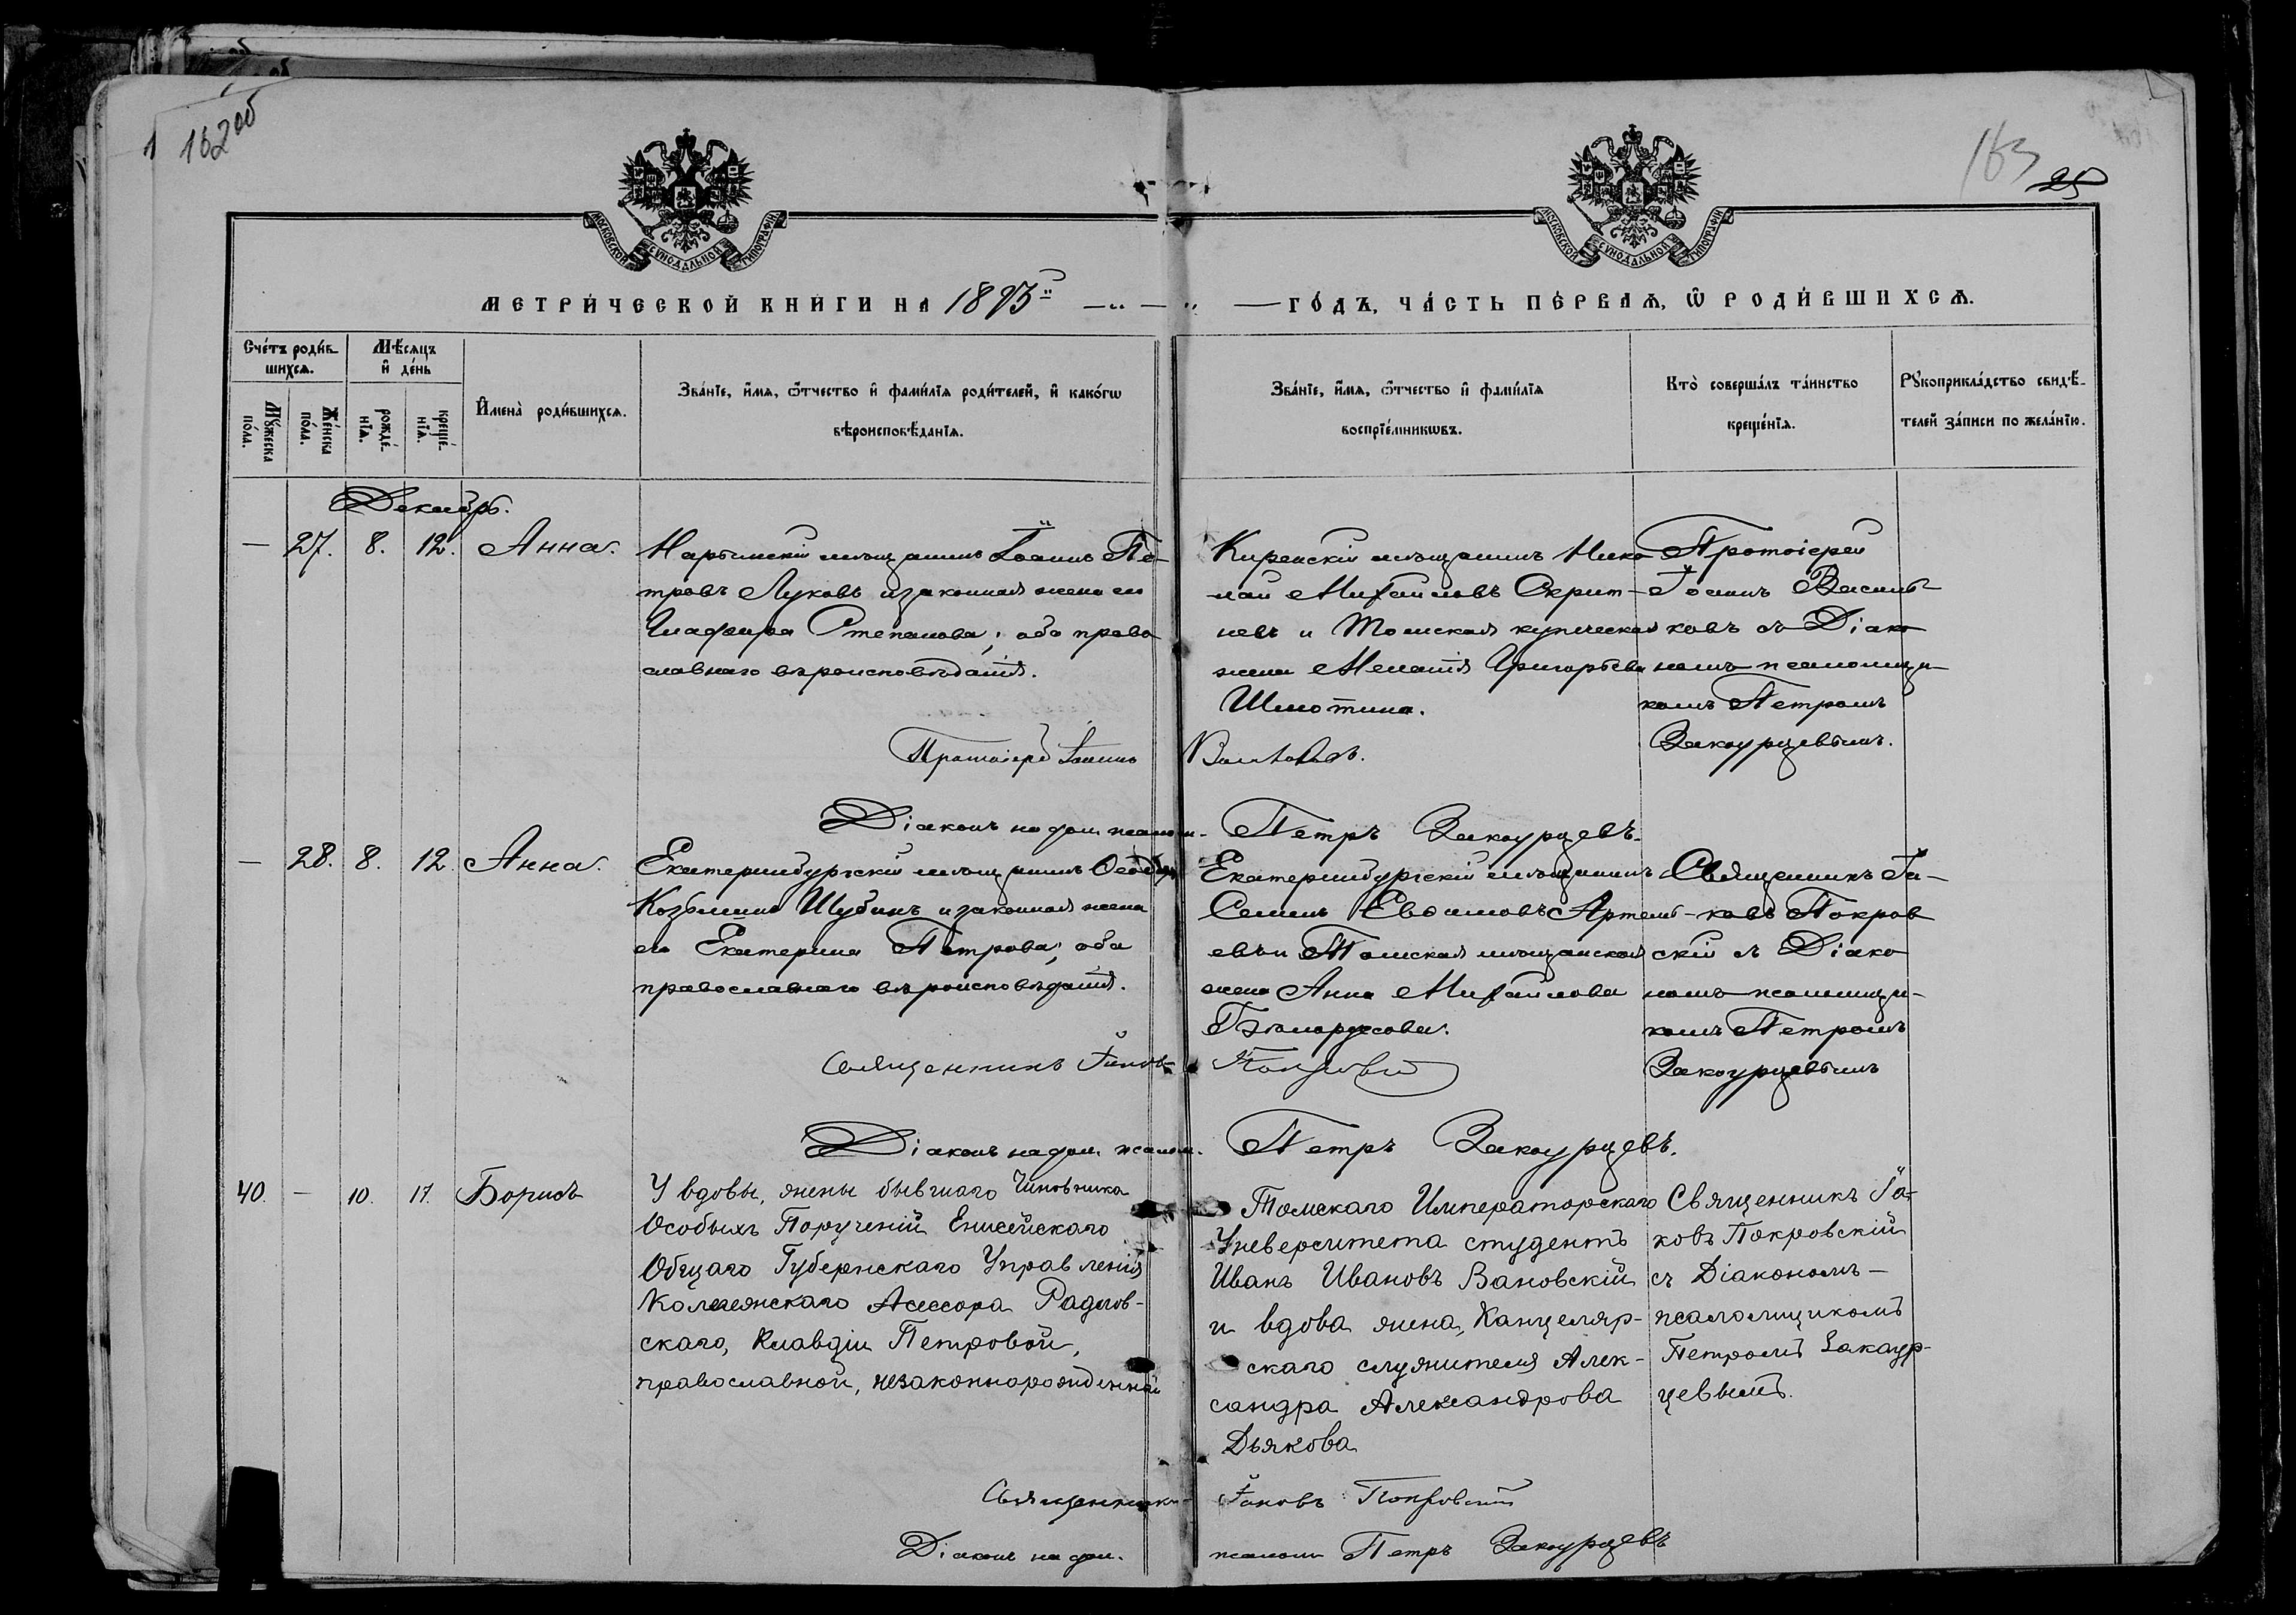 162 об
163
25
МОСКОВСКОЙ СѴНОДАЛЬНОЙ ТИПОГРАФІИ
МОСКОВСКОЙ СѴНОДАЛЬНОЙ ТИПОГРАФІИ
МЕТРИ́ЧЕСКОЙ КНИ́ГИ НА 1893 й ГО́ДЪ, ЧА́СТЬ ПЕ́РВАѦ, Ѿ РОДИ́ВШИХСѦ.
Сче́тъ роди́в-
шихсѧ.
Мѣ́сѧцъ
и҆ де́нь
Му́жеска
по́ла.
Же́нска
по́ла.
рожде́-
нїѧ.
креще́-
нїѧ.
И҆мена̀ роди́вшихсѧ.
Зва́нїе, и҆́мѧ, ѻ҆́тчество и҆ фами́лїѧ роди́телей, и҆ како́гѡ
вѣроисповѣ́данїѧ.
Зва́нїе, и҆́мѧ, ѻ҆́тчество и҆ фами́лїѧ
воспрїе́мникѡвъ.
Кто̀ соверша́лъ та́инство
креще́нїѧ.
Рꙋкоприкла́дство свидѣ́-
телей за́писи по жела́нїю.
Декабрь.
— 27. 8. 12. Анна.
Нарымскій мѣщанинъ Іоаннъ Пе-
тровъ Луковъ и законная жена его
Глафира Степанова; оба право
славнаго вѣроисповѣданія.
Киренскій мѣщанинъ Нико
лай Михайловъ Скрит-
невъ и Томская купеческая
жена Меланія Григорьева
Шмотина.
Протоіерей
Іоаннъ Василь
ковъ съ Діако
номъ псаломщи-
комъ Петромъ
Закоурцевымъ.
Протоіерей Іоаннъ Васильковъ.
Діаконъ на дол. псалом. Петръ Закоурцевъ.
— 28. 8. 12 Анна.
Екатеринбургскій мѣщанинъ
Козьминъ Шубинъ и законная жена
его Екатерина Петрова; оба
православнаго вѣроисповѣданія.
Екатеринбургскій мѣщанинъ
Семенъ Евѳимовъ Артемь-
евъ и Томская мѣщанская
жена Анна Михайлова
Бѣлоруссова.
Священникъ Іа-
ковъ Покров
скій съ Діако
номъ псаломщи-
комъ Петромъ
Закоурцевымъ
Священникъ Іаковъ Покровскій
Діаконъ на дол. псалом. Петръ Закоурцевъ.
40. — 10. 17. Борисъ
У вдовы, жены бывшаго Чиновника
Особыхъ Порученій Енисейскаго
Общаго Губернскаго Управленія
Колежскаго Асессора Радлов-
скаго, Клавдіи Петровой,
православной, незаконнорожденный
Томскаго Императорскаго
Университета студентъ
Иванъ Ивановъ Вановскій
и вдова жена, Канцеляр-
скаго служителя Алек-
сандра Александрова
Дьякова
Священникъ Іа-
ковъ Покровскій
съ Діакономъ —
псаломщикомъ
Петромъ Закаур-
цевымъ.
Священникъ Іаковъ Покровскій
Діаконъ на дол. псалом Петръ Закоурцевъ